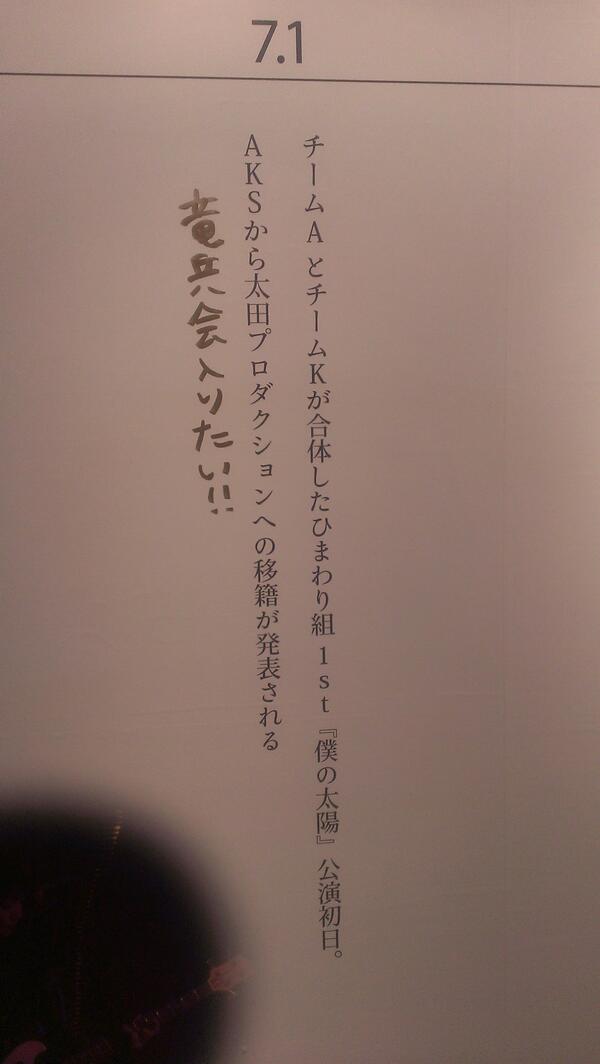 7.1
チームAとチームKが合体したひまわり組1st『僕の太陽』公演初日。
AKSから太田プロダクションへの移籍が発表される
竜兵会入りたい!!